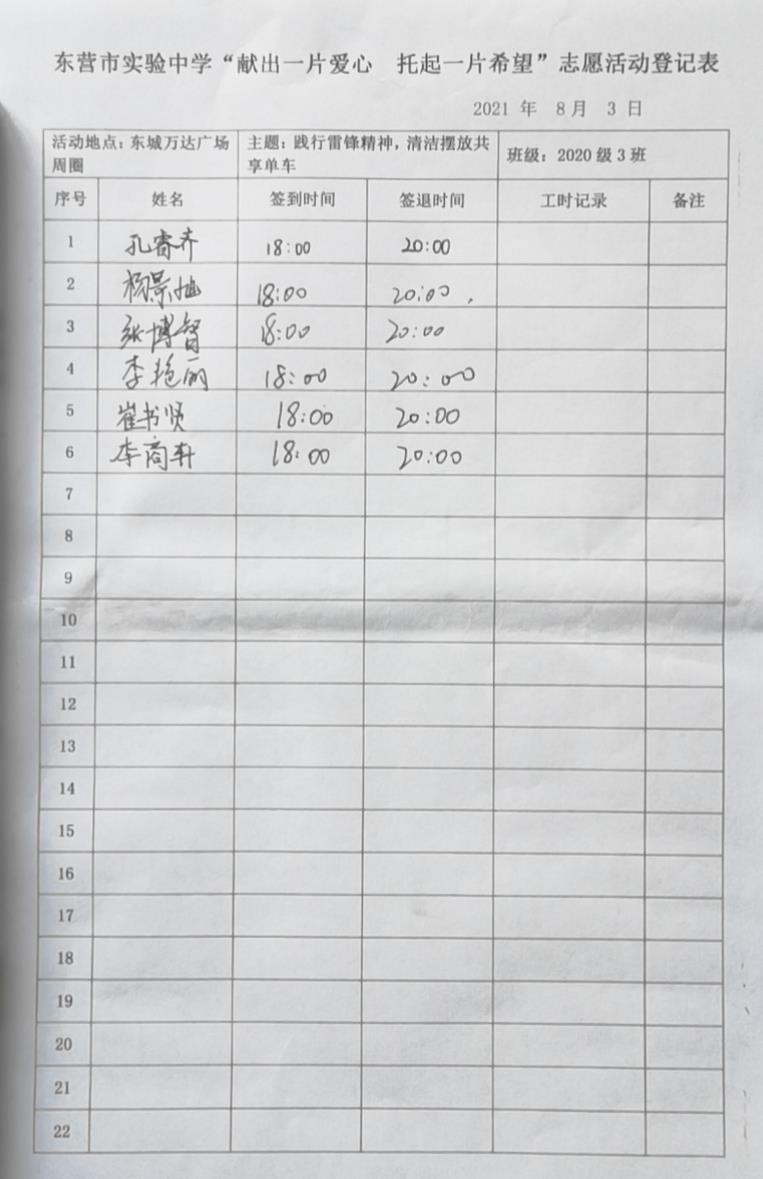 东营市实验中学“献出一片爱心 托起一片希望”志愿活动登记表
2021 年 8月 3 日
活动地点：东城万达广场周圈 主题：践行雷锋精神，清洁摆放共享单车 班级：2020级3班
序号 姓名 签到时间 签退时间 工时记录 备注
1 孔睿齐 18:00 20:00
2 杨景 18:00 20:00
3 张博智 18:00 20:00
4 李艳丽 18:00 20:00
5 崔书贤 18:00 20:00
6 李商轩 18:00 20:00
7
8
9
10
11
12
13
14
15
16
17
18
19
20
21
22